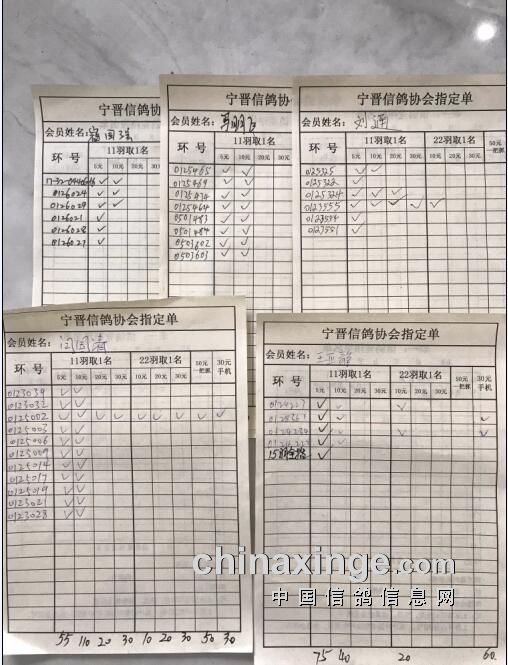 宁晋信鸽协会指定单
会员姓名：
环号
11羽取1名
5元 10元 20元 30元
0126024 ✓ ✓
0126029 ✓ ✓
0126021 ✓
0126028 ✓
0126027 ✓
宁晋信鸽协会指定单
会员姓名：
环号
11羽取1名
5元 10元 20元 30元
0125465 ✓ ✓
0125469 ✓ ✓
0125434 ✓ ✓
0125464 ✓ ✓
0501483 ✓ ✓
0501484 ✓ ✓
0503602 ✓ ✓
0503603 ✓ ✓
宁晋信鸽协会指定单
会员姓名：刘通
环号
11羽取1名 22羽取1名 50元一把抓
5元 10元 20元 30元 10元 20元 30元
0125325 ✓ ✓
0125322 ✓
0125324 ✓ ✓ ✓
0123555 ✓ ✓ ✓ ✓ ✓
0123554 ✓
0123551 ✓
宁晋信鸽协会指定单
会员姓名：闫国清
环号
11羽取1名 22羽取1名 50元一把抓 30元手机
5元 10元 20元 30元 10元 20元 30元
0123039 ✓ ✓
0123032 ✓ ✓
0125002 ✓ ✓ ✓ ✓ ✓ ✓ ✓ ✓ ✓
0125003 ✓ ✓
0125006 ✓ ✓
0125009 ✓ ✓
0125014 ✓ ✓
0125017 ✓ ✓
0125019 ✓ ✓
0123021 ✓ ✓
0123028 ✓ ✓
55 110 20 30 10 20 30 50 30
宁晋信鸽协会指定单
会员姓名：
环号
11羽取1名 22羽取1名 50元一把抓 30元手机
5元 10元 20元 30元 10元 20元 30元
0124227 ✓ ✓ ✓
0128361 ✓ ✓ ✓
0124230 ✓ ✓ ✓ ✓
✓ ✓
15羽全格 ✓
75 40 20 60
chinaxinge.com
中国信鸽信息网